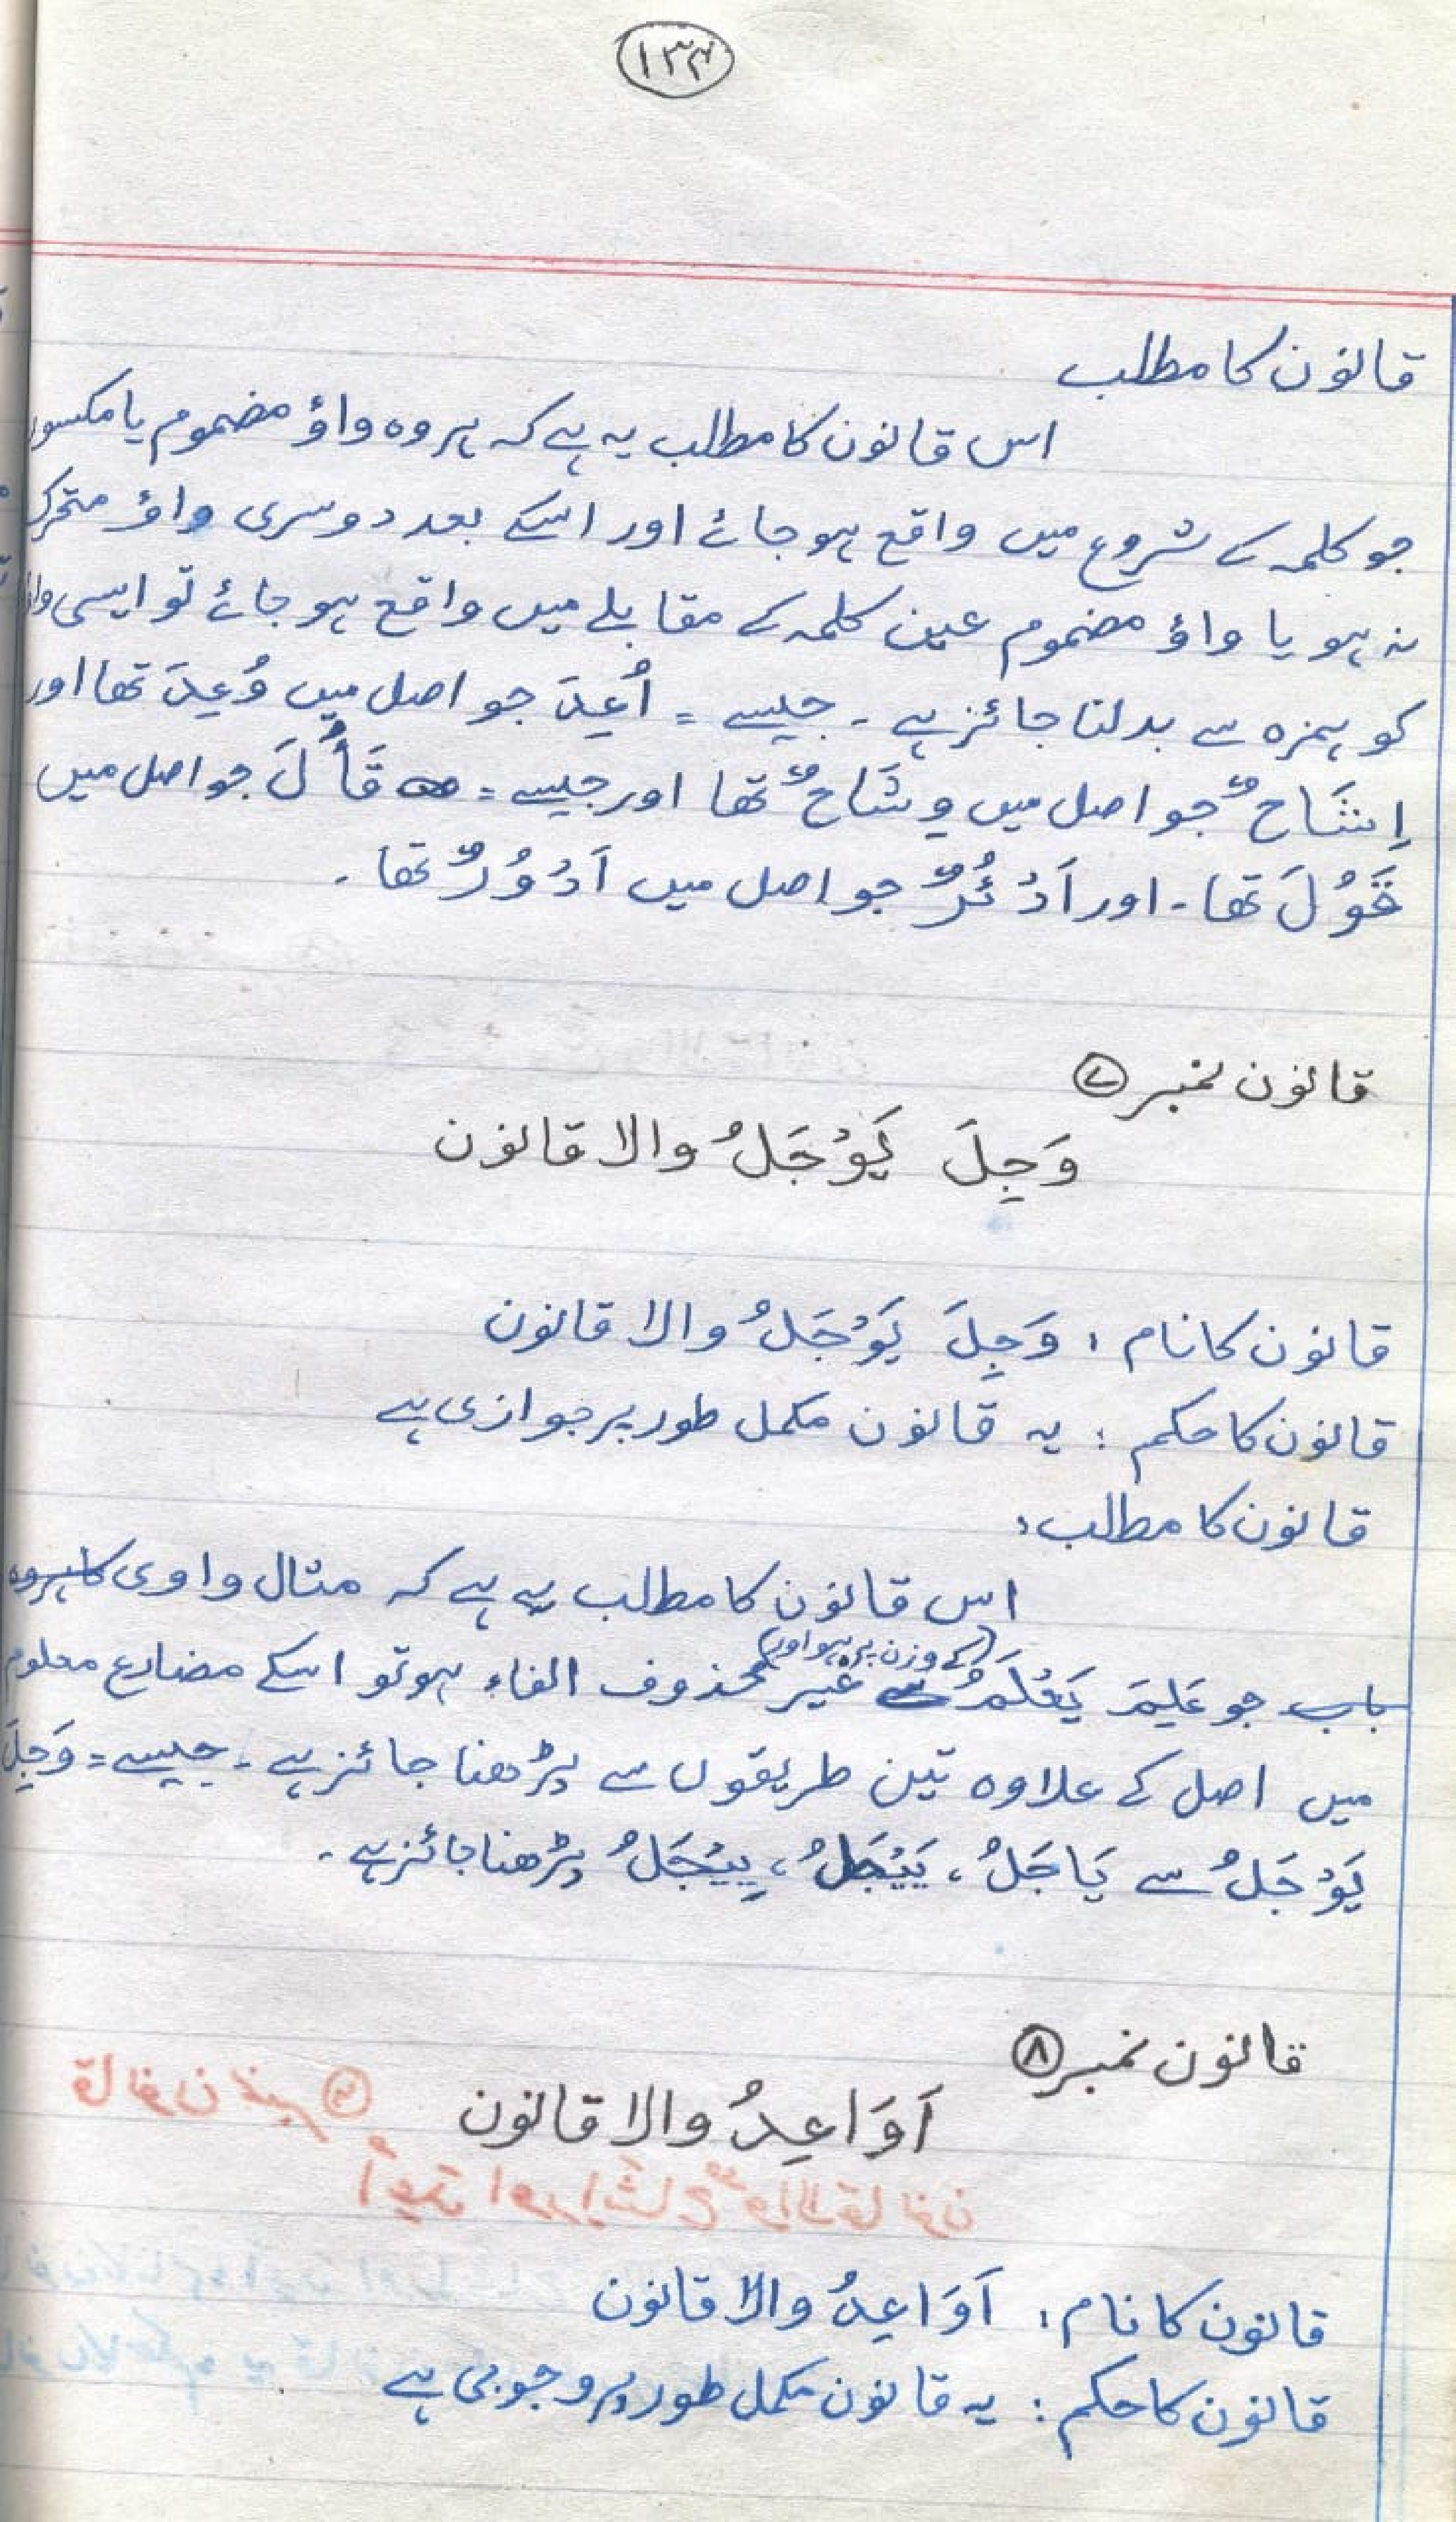 ۱۳۴
قانون کا مطلب
اس قانون کا مطلب یہ ہے کہ ہر وہ واؤ مضموم یا مکسور
جو کلمہ کے شروع میں واقع ہو جائے اور اسکے بعد دوسری واؤ متحرک
نہ ہو یا واؤ مضموم عین کلمہ کے مقابلے میں واقع ہو جائے تو ایسی واؤ
کو ہمزہ سے بدلنا جائز ہے ۔ جیسے = اُعِدَ جو اصل میں وُعِدَ تھا اور
اِشَاحٌ جو اصل میں وِشَاحٌ تھا اور جیسے = قَأُلَ جو اصل میں
قَوُلَ تھا ۔ اور اَدْئُرٌ جو اصل میں اَدْوُرٌ تھا ۔
قانون نمبر ۷
وَجِلَ یَوْجَلُ والا قانون
قانون کا نام : وَجِلَ یَوْجَلُ والا قانون
قانون کا حکم : یہ قانون مکمل طور پر جوازی ہے
قانون کا مطلب :
اس قانون کا مطلب یہ ہے کہ مثال واوی کا ہر وہ
باب جو عَلِمَ یَعْلَمُ (کے وزن پر ہو اور) غیر محذوف الفاء ہو تو اسکے مضارع معلوم
میں اصل کے علاوہ تین طریقوں سے پڑھنا جائز ہے ۔ جیسے = وَجِلَ
یَوْجَلُ سے یَاجَلُ ، یَیْجَلُ ، یِیْجَلُ پڑھنا جائز ہے ۔
قانون نمبر ۸
اَوَاعِدُ والا قانون
قانون کا نام : اَوَاعِدُ والا قانون
قانون کا حکم : یہ قانون مکمل طور پر وجوبی ہے